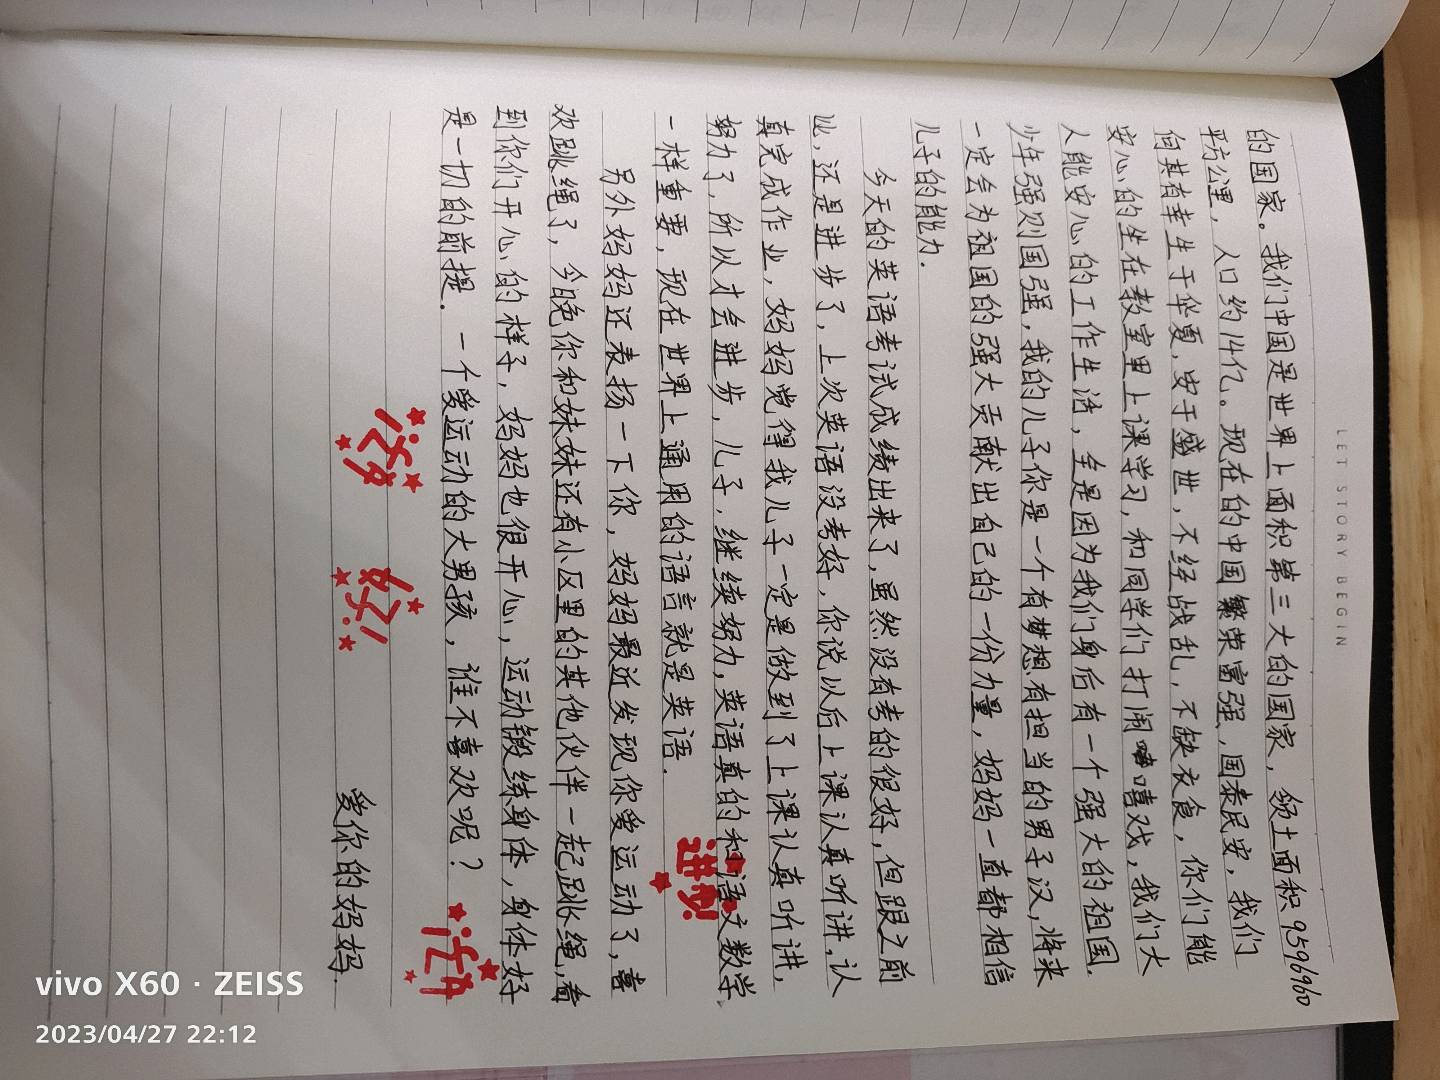 LET STORY BEGIN
的国家。我们中国是世界上面积第三大的国家，领土面积9596960
平方公里，人口约14亿。现在的中国繁荣富强，国泰民安，我们
何其有幸生于华夏，安于盛世，不经战乱，不缺衣食，你们能
安心的坐在教室里上课学习，和同学们打闹嘻戏，我们大
人能安心的工作生活，全是因为我们身后有一个强大的祖国.
少年强则国强，我的儿子你是一个有梦想有担当的男子汉，将来
一定会为祖国的强大贡献出自己的一份力量，妈妈一直都相信
儿子的能力.
今天的英语考试成绩出来了，虽然没有考的很好，但跟之前
比，还是进步了，上次英语没考好，你说以后上课认真听讲，认
真完成作业，妈妈觉得我儿子一定是做到了上课认真听讲，
努力了，所以才会进步，儿子，继续努力，英语真的和语文数学
一样重要，现在世界上通用的语言就是英语.
进步!
另外妈妈还表扬一下你，妈妈最近发现你爱运动了，喜
欢跳绳了，今晚你和妹妹还有小区里的其他伙伴一起跳绳，看
到你们开心的样子，妈妈也很开心，运动锻练身体，身体好
是一切的前提. 一个爱运动的大男孩，谁不喜欢呢？
爱你的妈妈.
vivo X60 · ZEISS
2023/04/27 22:12